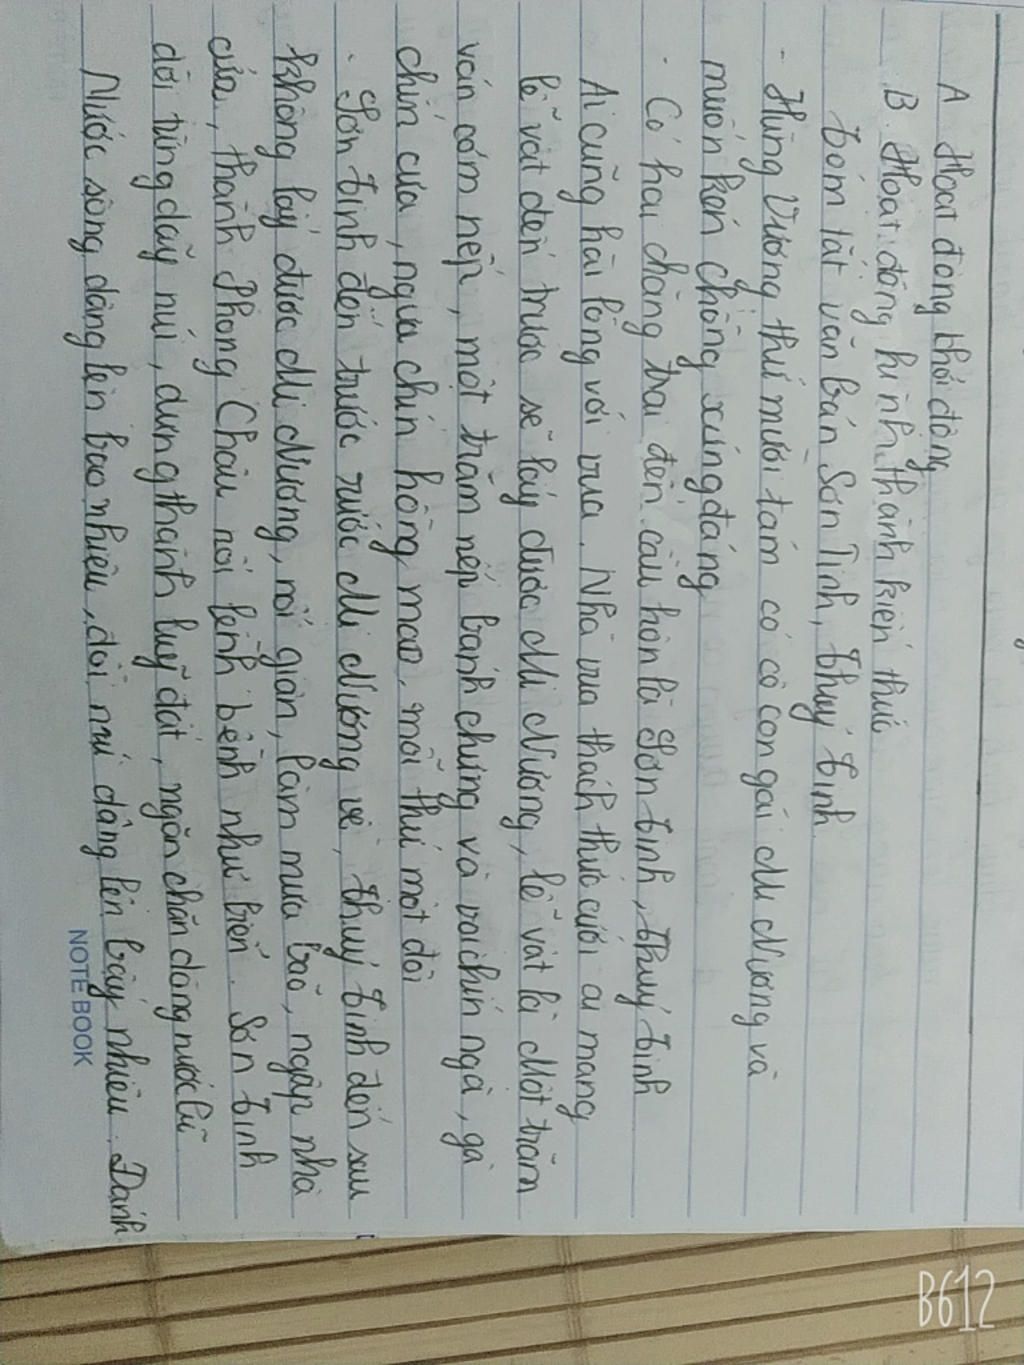 A Hoạt động khởi động
B. Hoạt động hình thành kiến thức
Tóm tắt văn bản Sơn Tinh, Thuỷ Tinh
- Hùng Vương thứ mười tám có cô con gái Mị Nương và
muốn kén chồng xứng đáng
- Có hai chàng trai đến cầu hôn là Sơn Tinh, Thuỷ Tinh
Ai cũng hài lòng với vua. Nhà vua thách thức cưới ai mang
lễ vật đến trước sẽ lấy được Mị Nương, lễ vật là Một trăm
ván cơm nếp, một trăm nếp bánh chưng và voi chín ngà, gà
chín cựa, ngựa chín hồng mao, mỗi thứ một đôi
- Sơn Tinh đến trước rước Mị Nương về, Thuỷ Tinh đến sau
không lấy được Mị Nương, nổi giận, làm mưa bão, ngập nhà
cửa, thành Phong Châu nổi lềnh bềnh như biển. Sơn Tinh
dời từng dãy núi, dựng thành luỹ đất, ngăn chặn dòng nước lũ
Nước sông dâng lên bao nhiêu, đồi núi dâng lên bấy nhiêu. Đánh
NOTEBOOK
B612